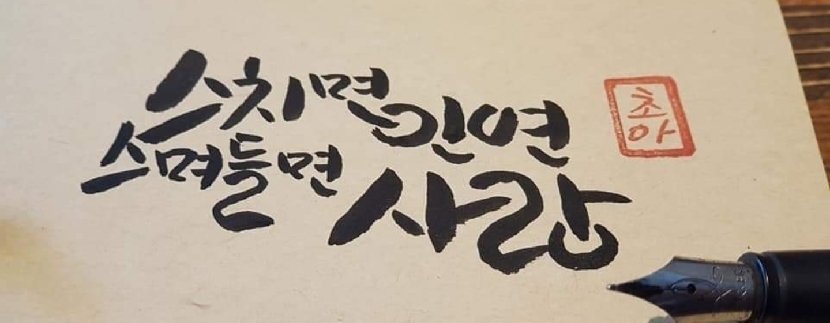 스치면 인연
스며들면 사랑
초아